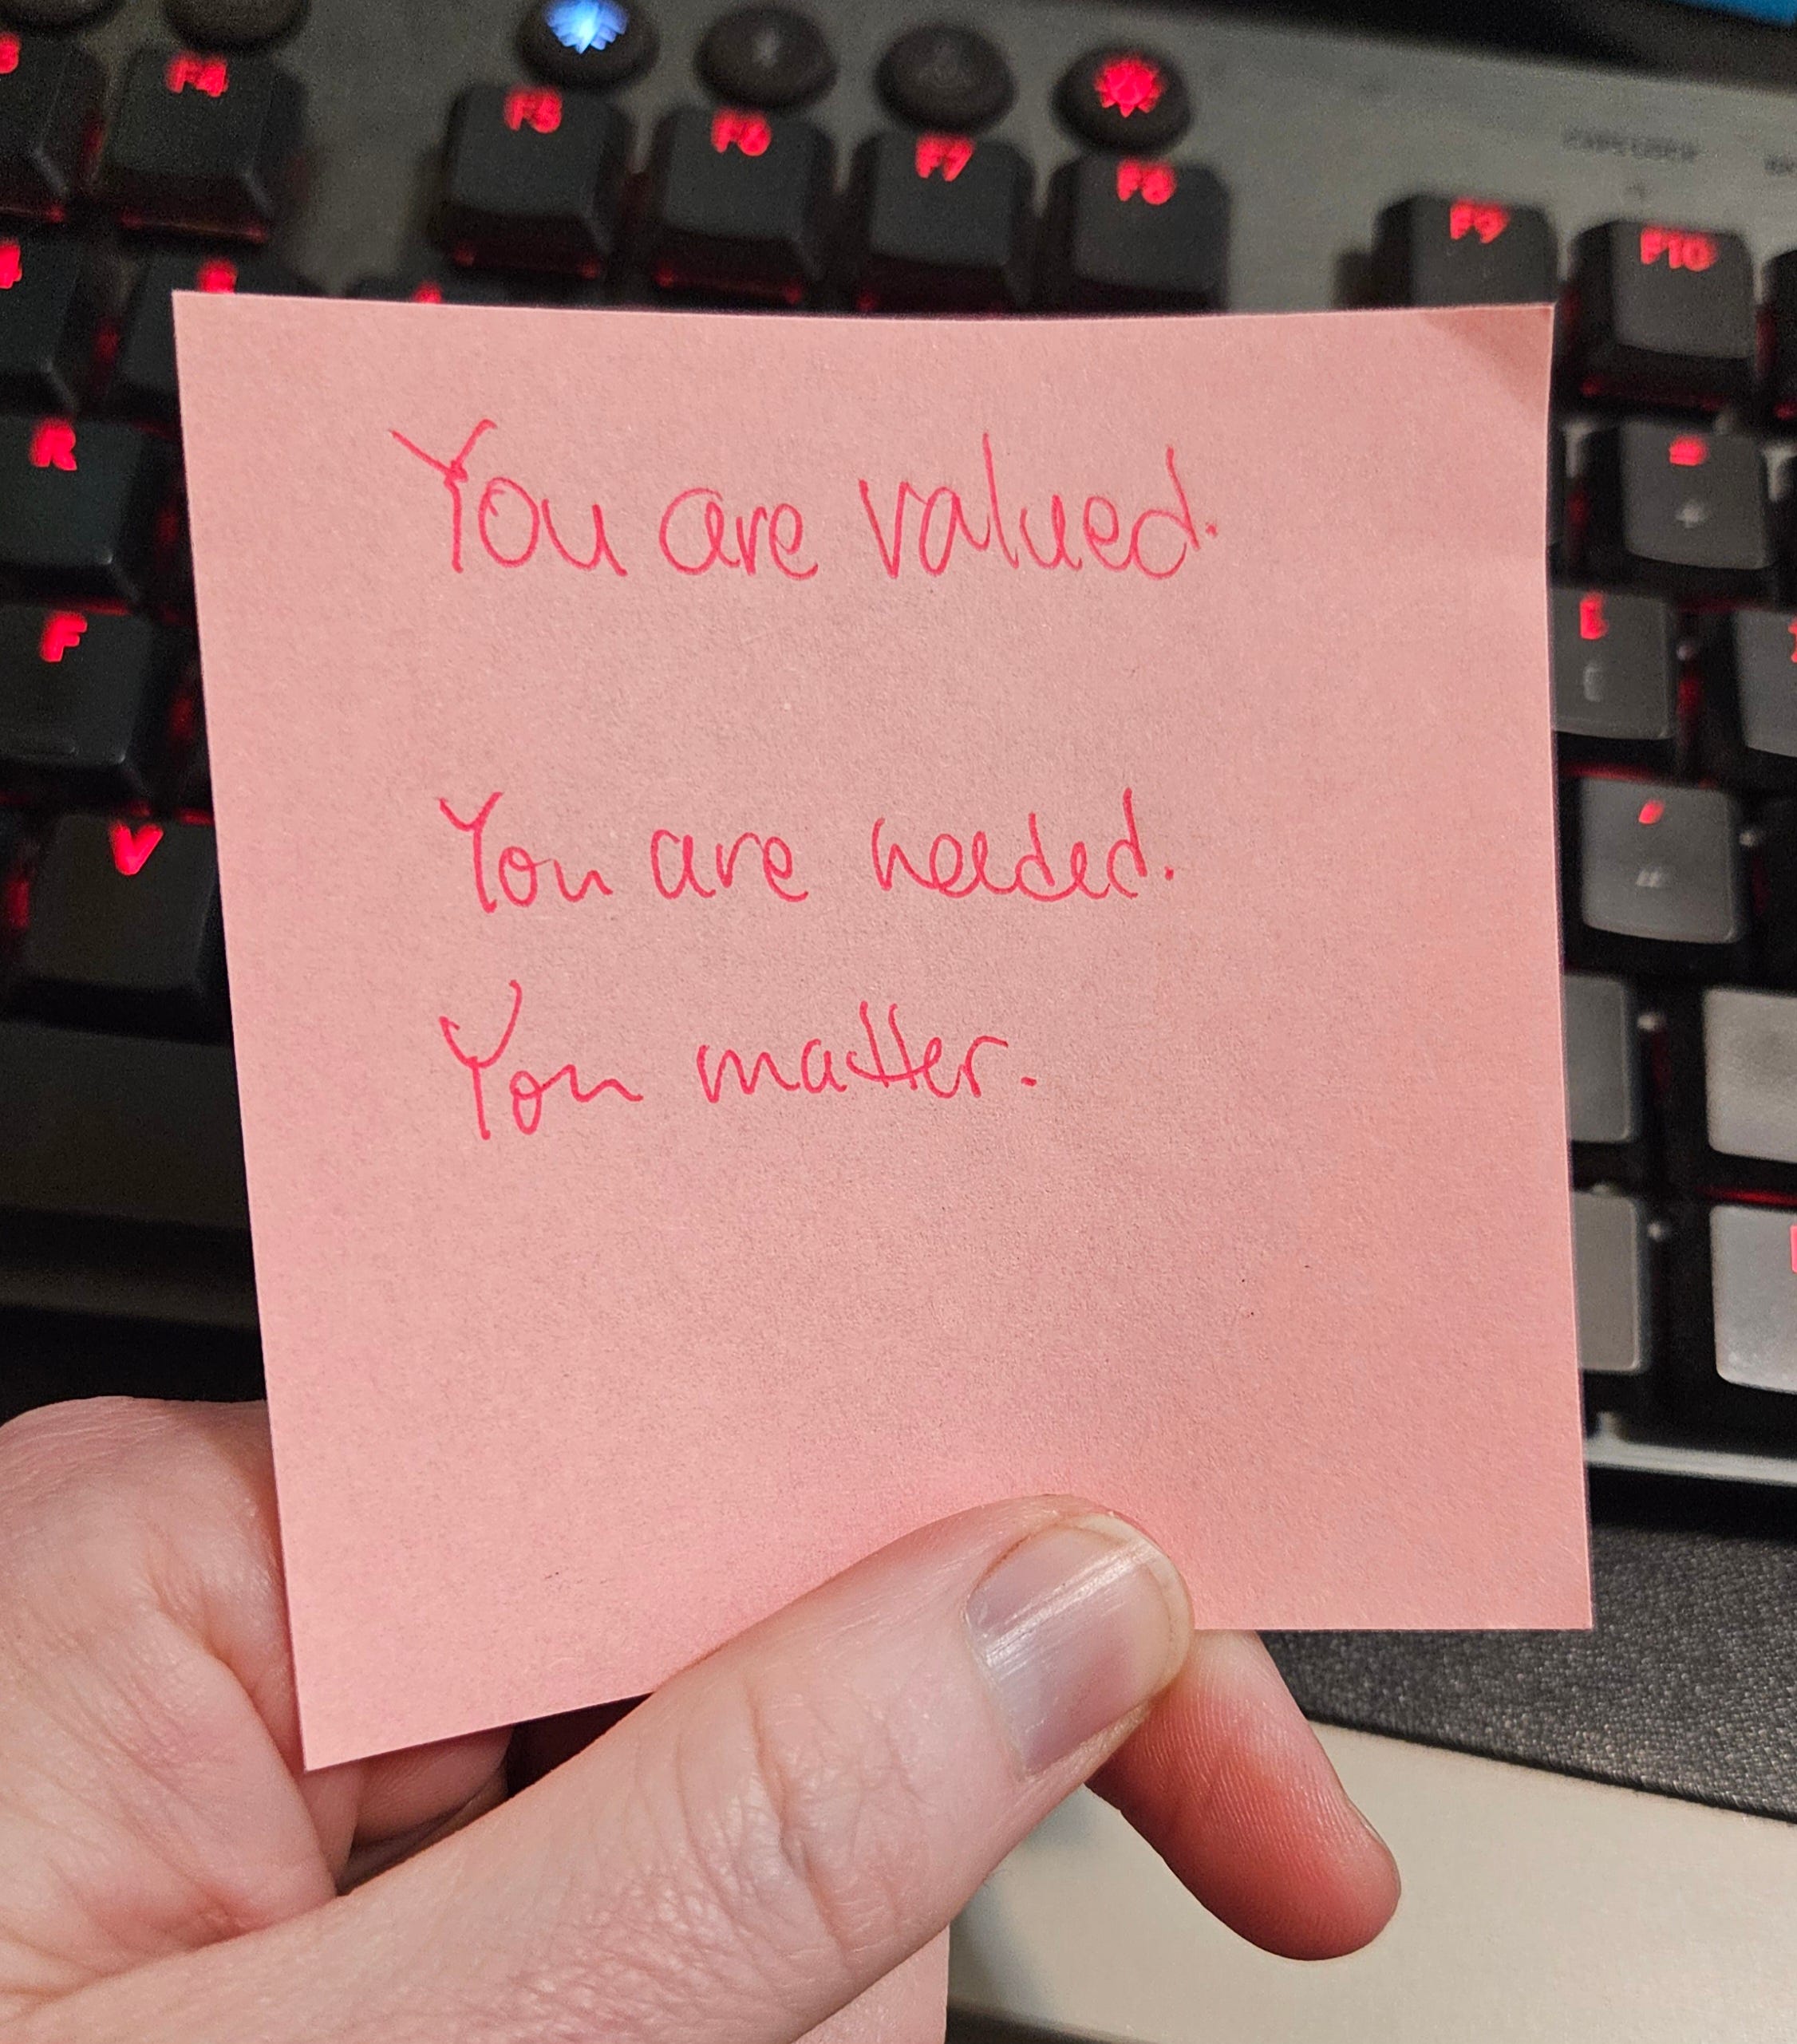 F4 F5 F6 F7 F8 F9 F10
You are valued.
R
= +
F
You are needed.
V
You matter.